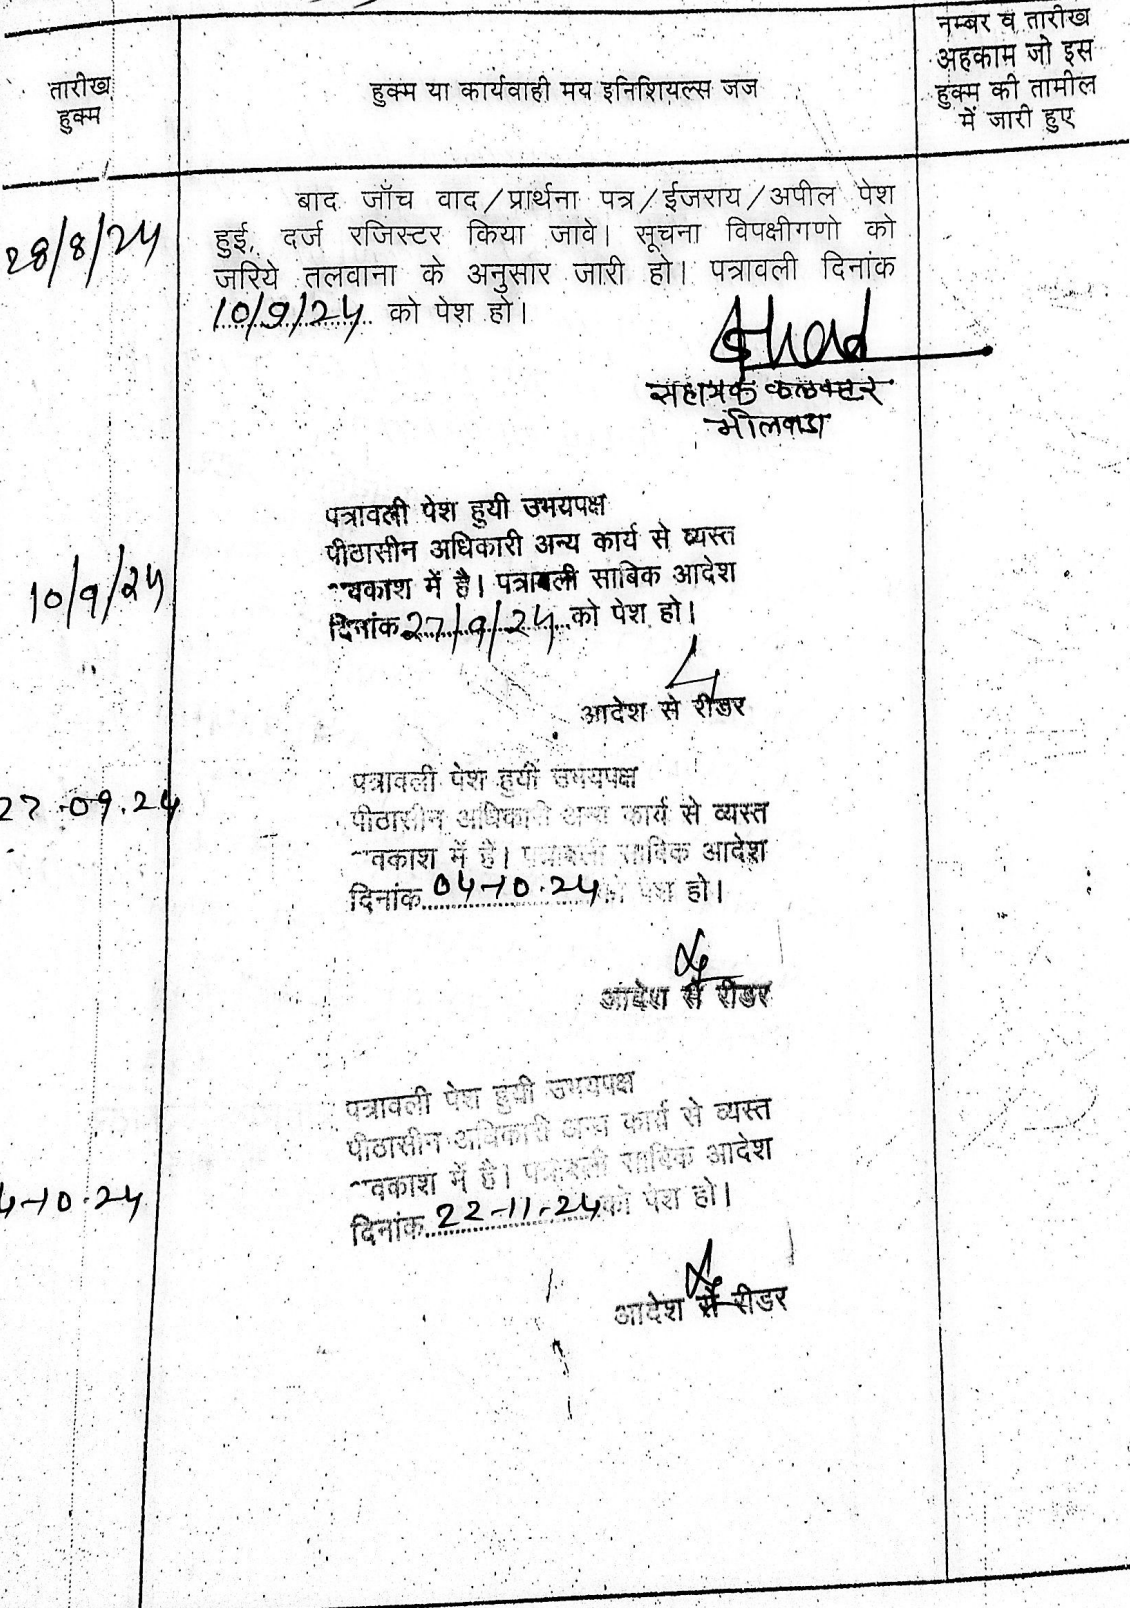 तारीख
हुक्म
हुक्म या कार्यवाही मय इनिशियल्स जज
नम्बर व तारीख
अहकाम जो इस
हुक्म की तामील
में जारी हुए
28/8/24
बाद जाँच वाद/प्रार्थना पत्र/ईजराय/अपील पेश
हुई, दर्ज रजिस्टर किया जावे। सूचना विपक्षीगणो को
जरिये तलवाना के अनुसार जारी हो। पत्रावली दिनांक
10/9/24 को पेश हो।
सहायक कलक्टर
भीलवाडा
10/9/24
पत्रावली पेश हुयी उभयपक्ष
पीठासीन अधिकारी अन्य कार्य से व्यस्त
वकाश में है। पत्रावली साबिक आदेश
दिनांक 27/9/24 को पेश हो।
आदेश से रीडर
27-09.24
पत्रावली पेश हुयी उभयपक्ष
पीठासीन अधिकारी अन्य कार्य से व्यस्त
वकाश में है। पत्रावली साबिक आदेश
दिनांक 04-10.24 को पेश हो।
आदेश से रीडर
4-10.24
पत्रावली पेश हुयी उभयपक्ष
पीठासीन अधिकारी अन्य कार्य से व्यस्त
वकाश में है। पत्रावली साबिक आदेश
दिनांक 22-11-24 को पेश हो।
आदेश से रीडर